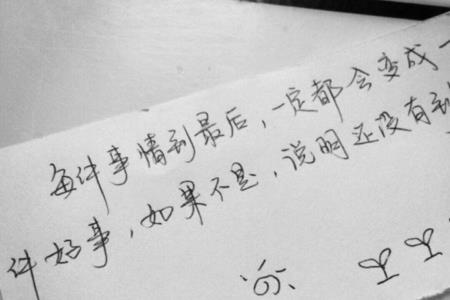 每件事情到最后,一定都会变成一
件好事,如果不是,说明还没有到